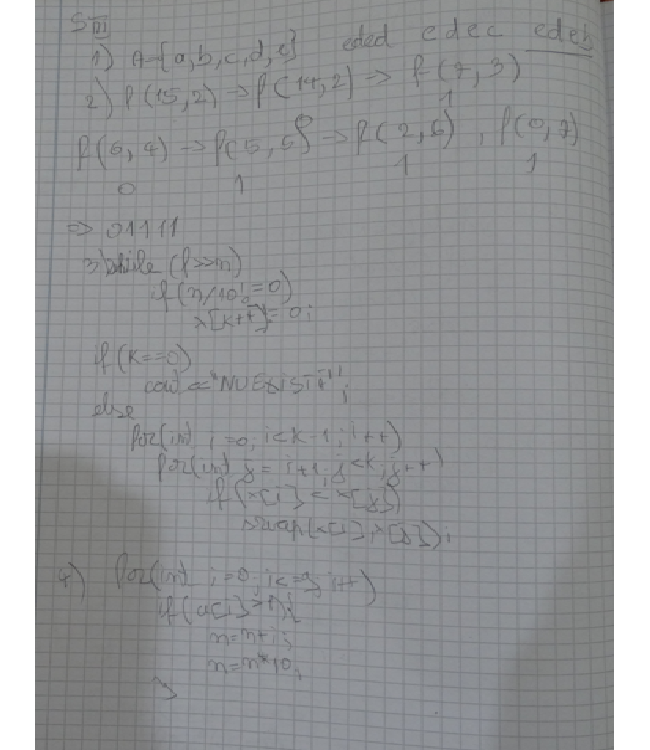 SIII
1) A={a,b,c,d,e} eded edec edeb
2) f(15,2) → f(14,2) ⇒ f(7,3)
1
f(6,4) → f(5,5) → f(2,6), f(0,7)
0 1 1 1
⇒ 01111
3) while (f>>n)
if(n/10!=0)
x[k++]=0;
if(k==0)
cout<<"NU EXISTĂ";
else
for(int i=0; i<k-1; i++)
for(int j=i+1; j<k; j++)
if(x[i]<x[j])
swap(x[i],x[j]);
4) for(int i=0; i<=9; i++)
if(a[i]>1){
n=n+i;
n=n*10;
}